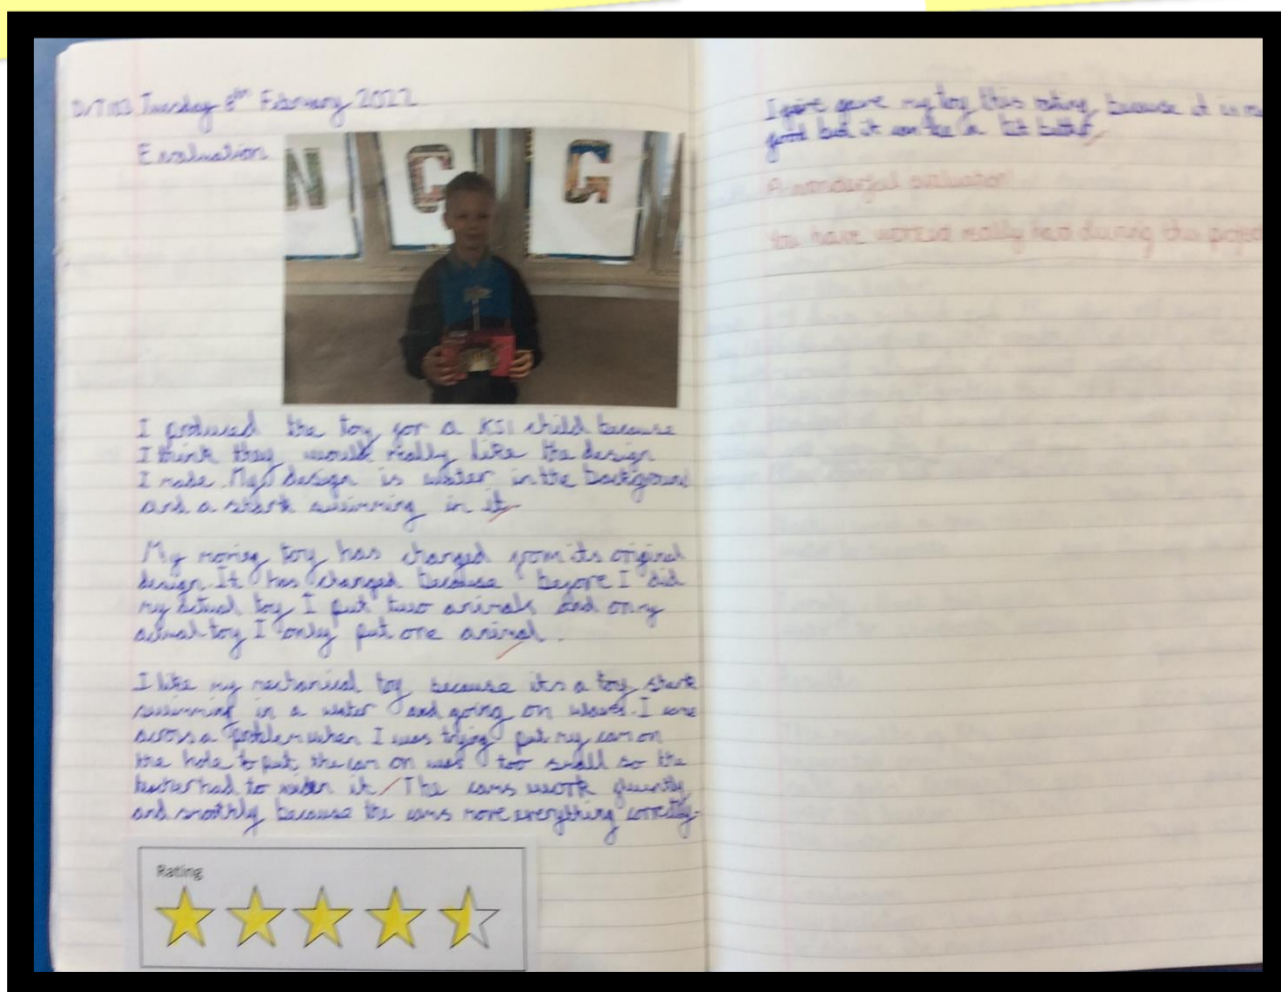 Tuesday 8th February 2022
Evaluation
N C G
I produced the toy for a KS1 child because
I think they would really like the design
I made. My design is water in the background
and a shark swimming in it
My moving toy has changed from its original
design. It has changed because before I did
my actual toy I put two animals and on my
actual toy I only put one animal.
I like my mechanical toy because its a toy shark
swimming in a water and going on waves. I came
across a problem when I was trying put my cam on
the hole to put the cam on was too small so the
teacher had to widen it. The cams work fluently
and smothly because the cams move everything correctly.
Rating
I give gave my toy this rating because it is
good but it can be a bit better.
A wonderful evaluation!
You have worked really hard during this project